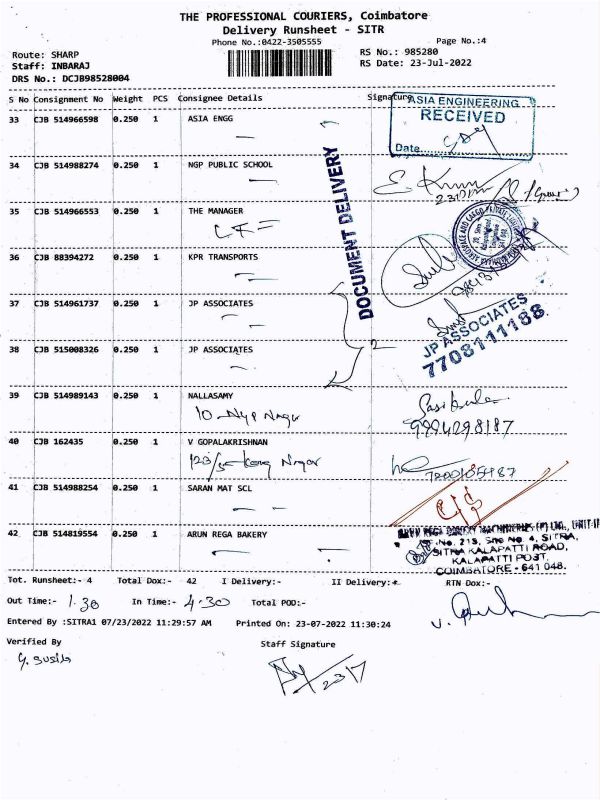 THE PROFESSIONAL COURIERS, Coimbatore
Delivery Runsheet - SITR
Phone No.:0422-3505555
Page No.:4
Route: SHARP
RS No.: 985280
Staff: INBARAJ
RS Date: 23-Jul-2022
DRS No.: DCJB98528004
S No Consignment No Weight PCS Consignee Details Signature
33 CJB 514966598 0.250 1 ASIA ENGG
ASIA ENGINEERING
RECEIVED
Date
34 CJB 514988274 0.250 1 NGP PUBLIC SCHOOL
DOCUMENT DELIVERY
35 CJB 514966553 0.250 1 THE MANAGER
36 CJB 88394272 0.250 1 KPR TRANSPORTS
37 CJB 514961737 0.250 1 JP ASSOCIATES
38 CJB 515008326 0.250 1 JP ASSOCIATES
2
JP ASSOCIATES
7708111188
39 CJB 514989143 0.250 1 NALLASAMY
10
9994298187
40 CJB 162435 0.250 1 V GOPALAKRISHNAN
Nagar
41 CJB 514988254 0.250 1 SARAN MAT SCL
42 CJB 514819554 0.250 1 ARUN REGA BAKERY
S.F.No. 213, Site No 4, SITRA,
SITRA KALAPATTI ROAD,
KALAPATTI POST,
COIMBATORE - 641 048.
Tot. Runsheet:- 4 Total Dox:- 42 I Delivery:- II Delivery:- RTN Dox:-
Out Time:- 1.30 In Time:- 4.30 Total POD:-
Entered By :SITRA1 07/23/2022 11:29:57 AM Printed On: 23-07-2022 11:30:24
Verified By Staff Signature
23/7